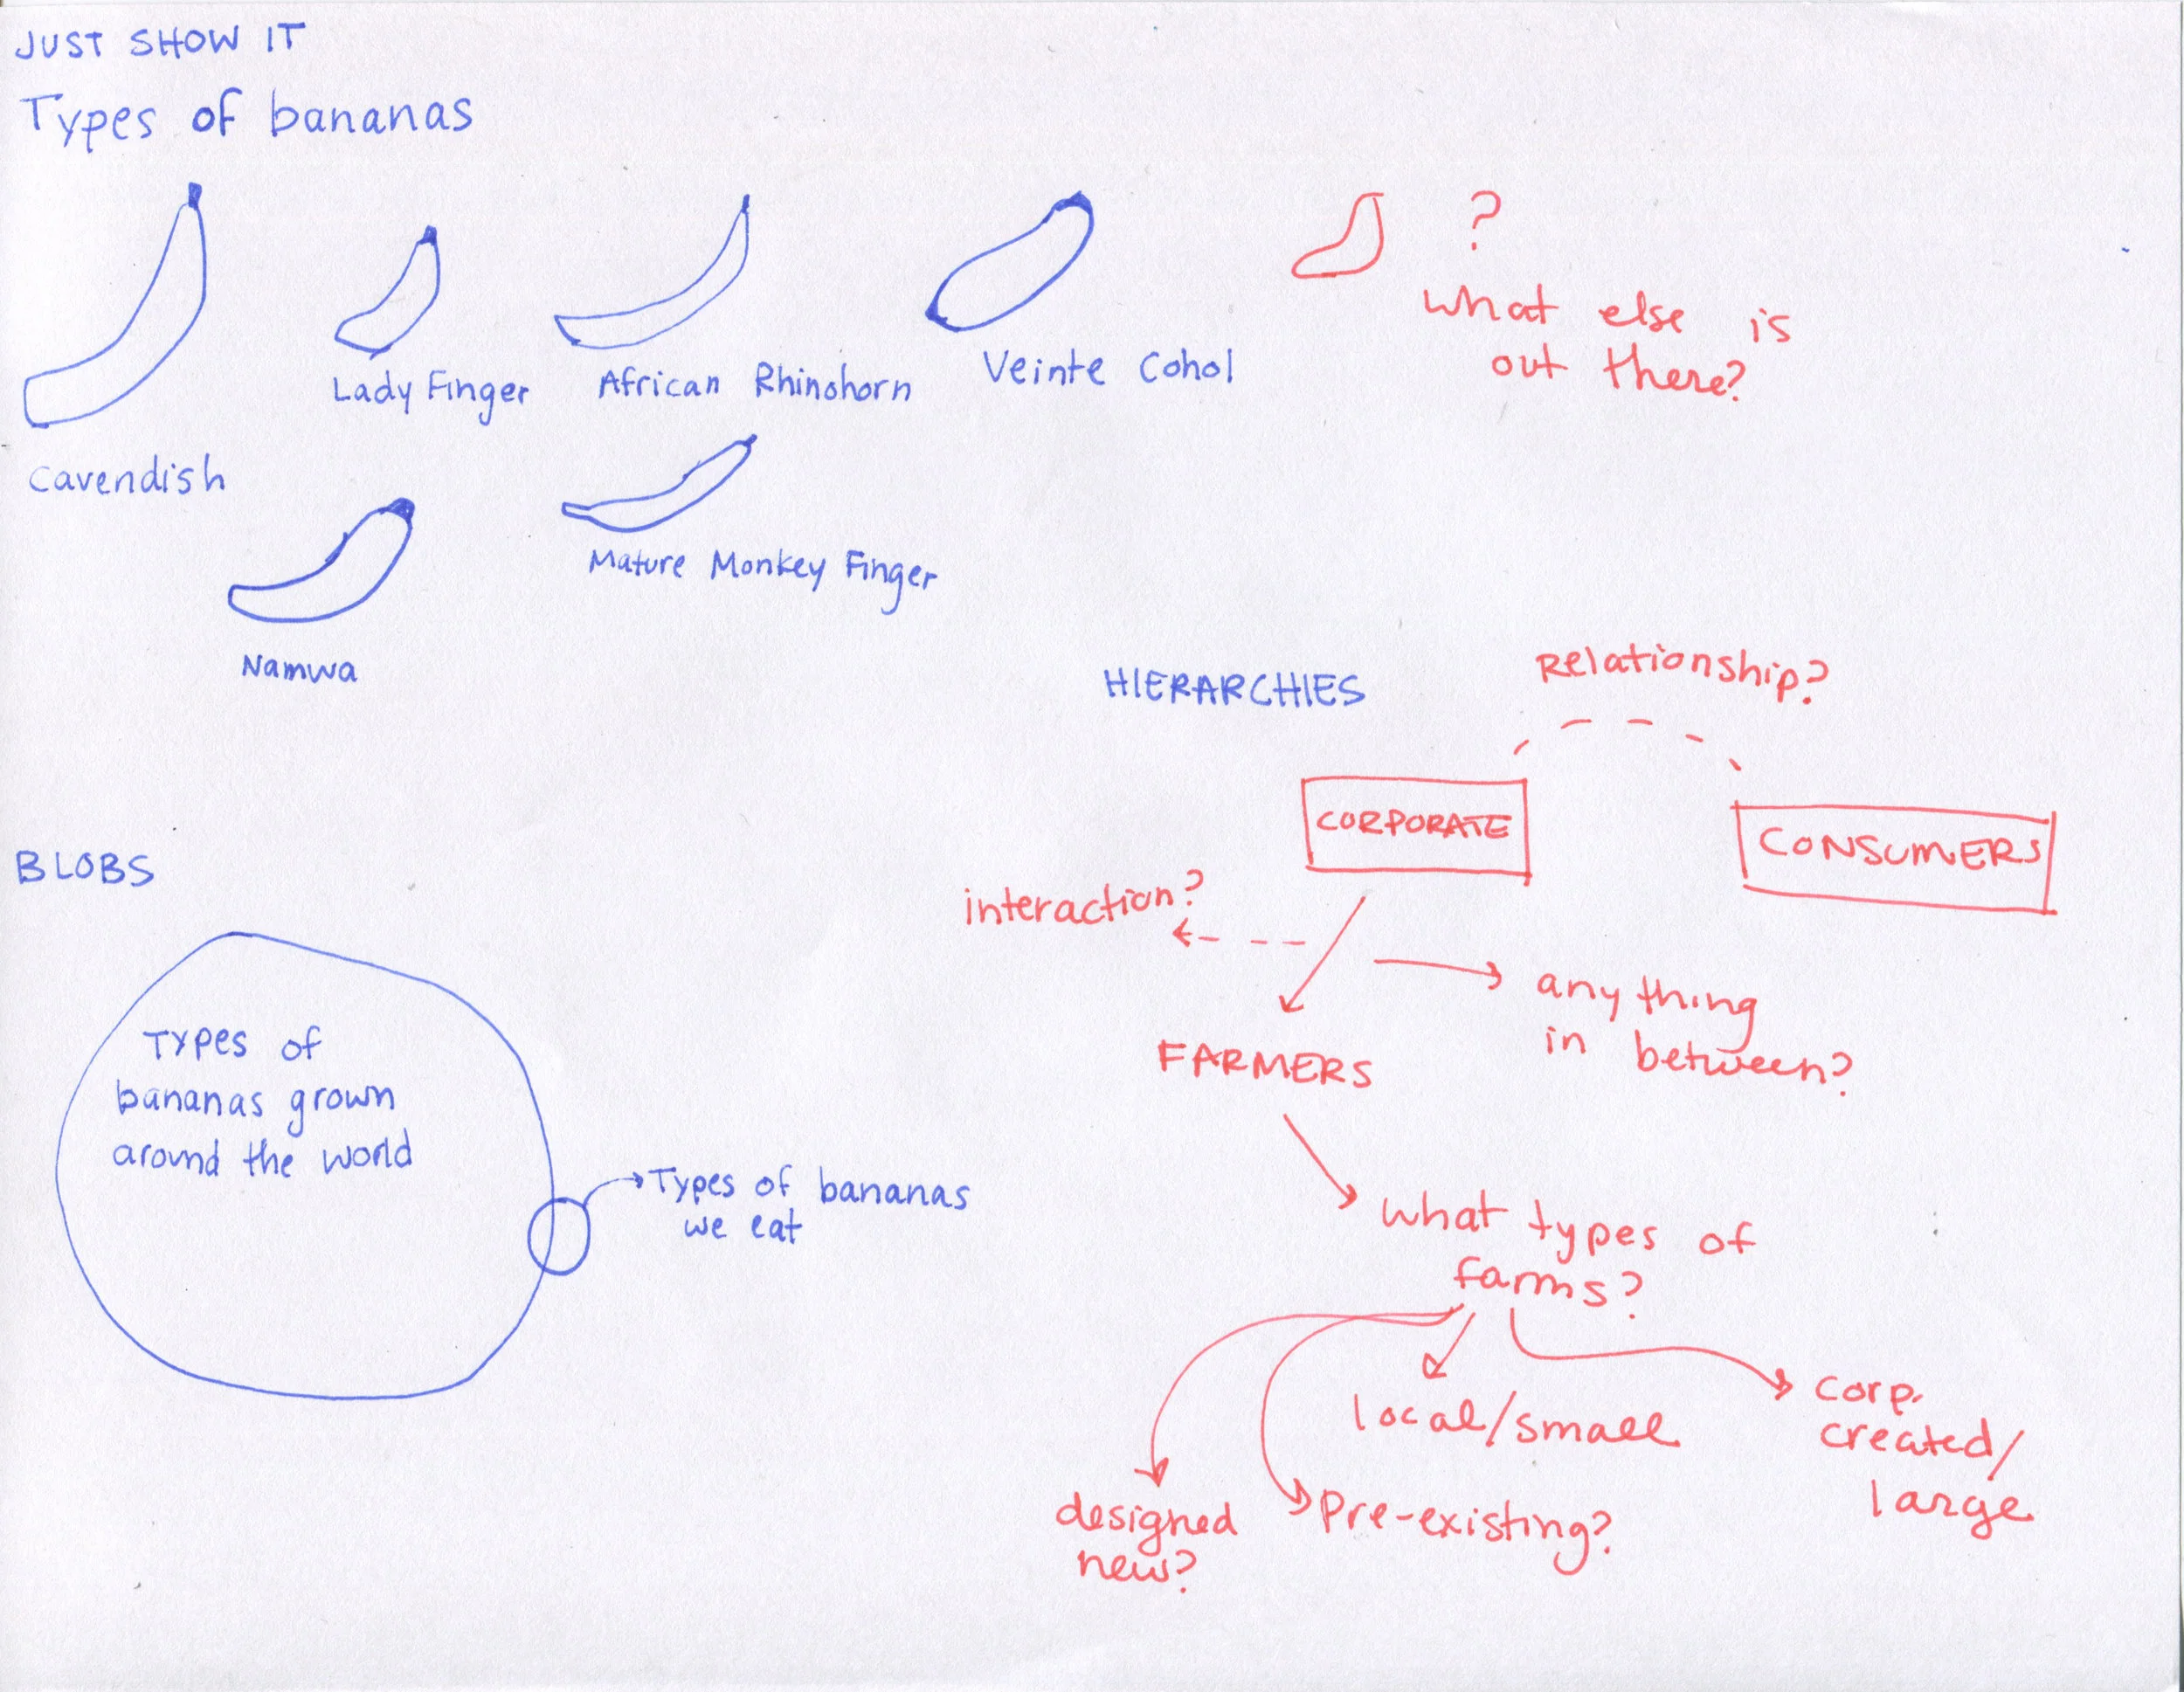 JUST SHOW IT
Types of bananas
?
what else is
out there?
Lady Finger
African Rhinohorn
Veinte Cohol
Cavendish
Mature Monkey Finger
Namwa
HIERARCHIES
Relationship?
CORPORATE
CONSUMERS
interaction?
anything
in between?
FARMERS
what types of
farms?
local/small
corp.
created/
large
designed
new?
pre-existing?
BLOBS
Types of
bananas grown
around the world
Types of bananas
we eat